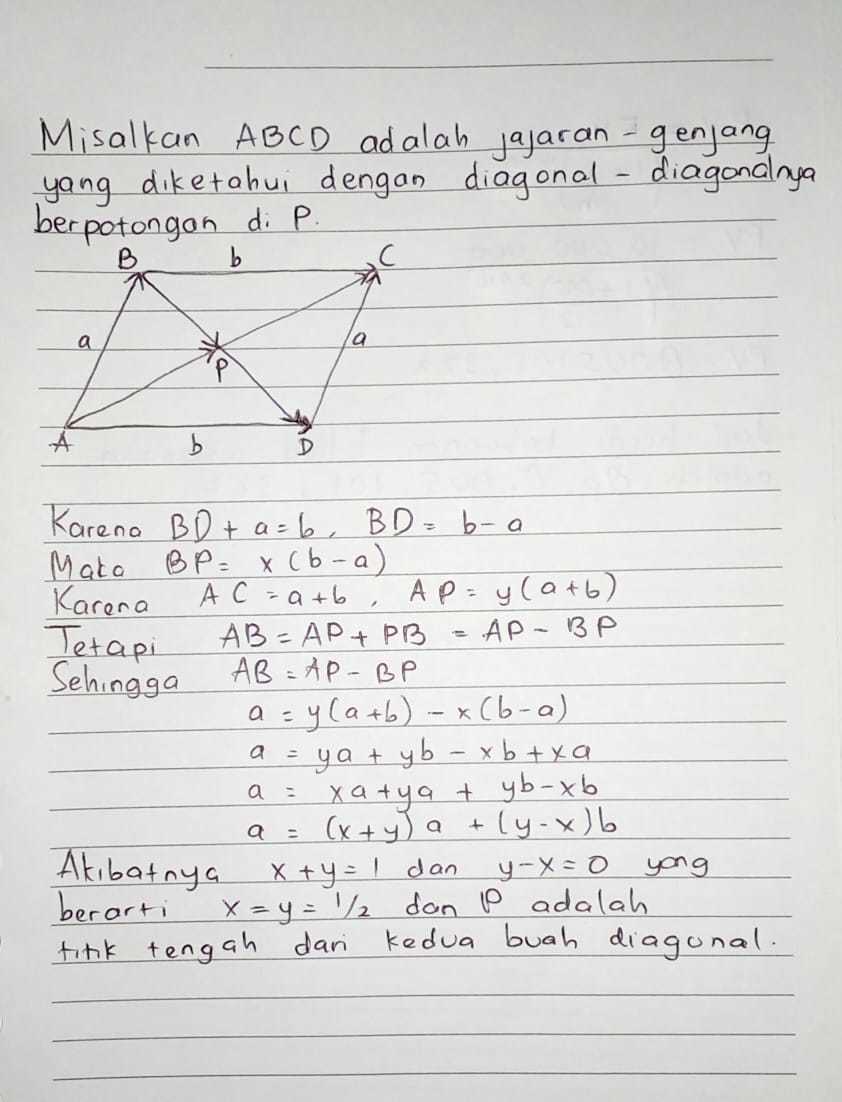 Misalkan ABCD adalah jajaran - genjang
yang diketahui dengan diagonal - diagonalnya
berpotongan di P.
B b C
a P a
A b D
Karena BD + a = b, BD = b - a
Maka BP = x (b - a)
Karena AC = a + b, AP = y (a + b)
Tetapi AB = AP + PB = AP - BP
Sehingga AB = AP - BP
a = y (a + b) - x (b - a)
a = ya + yb - xb + xa
a = xa + ya + yb - xb
a = (x + y) a + (y - x) b
Akibatnya x + y = 1 dan y - x = 0 yang
berarti x = y = 1/2 dan P adalah
titik tengah dari kedua buah diagonal.